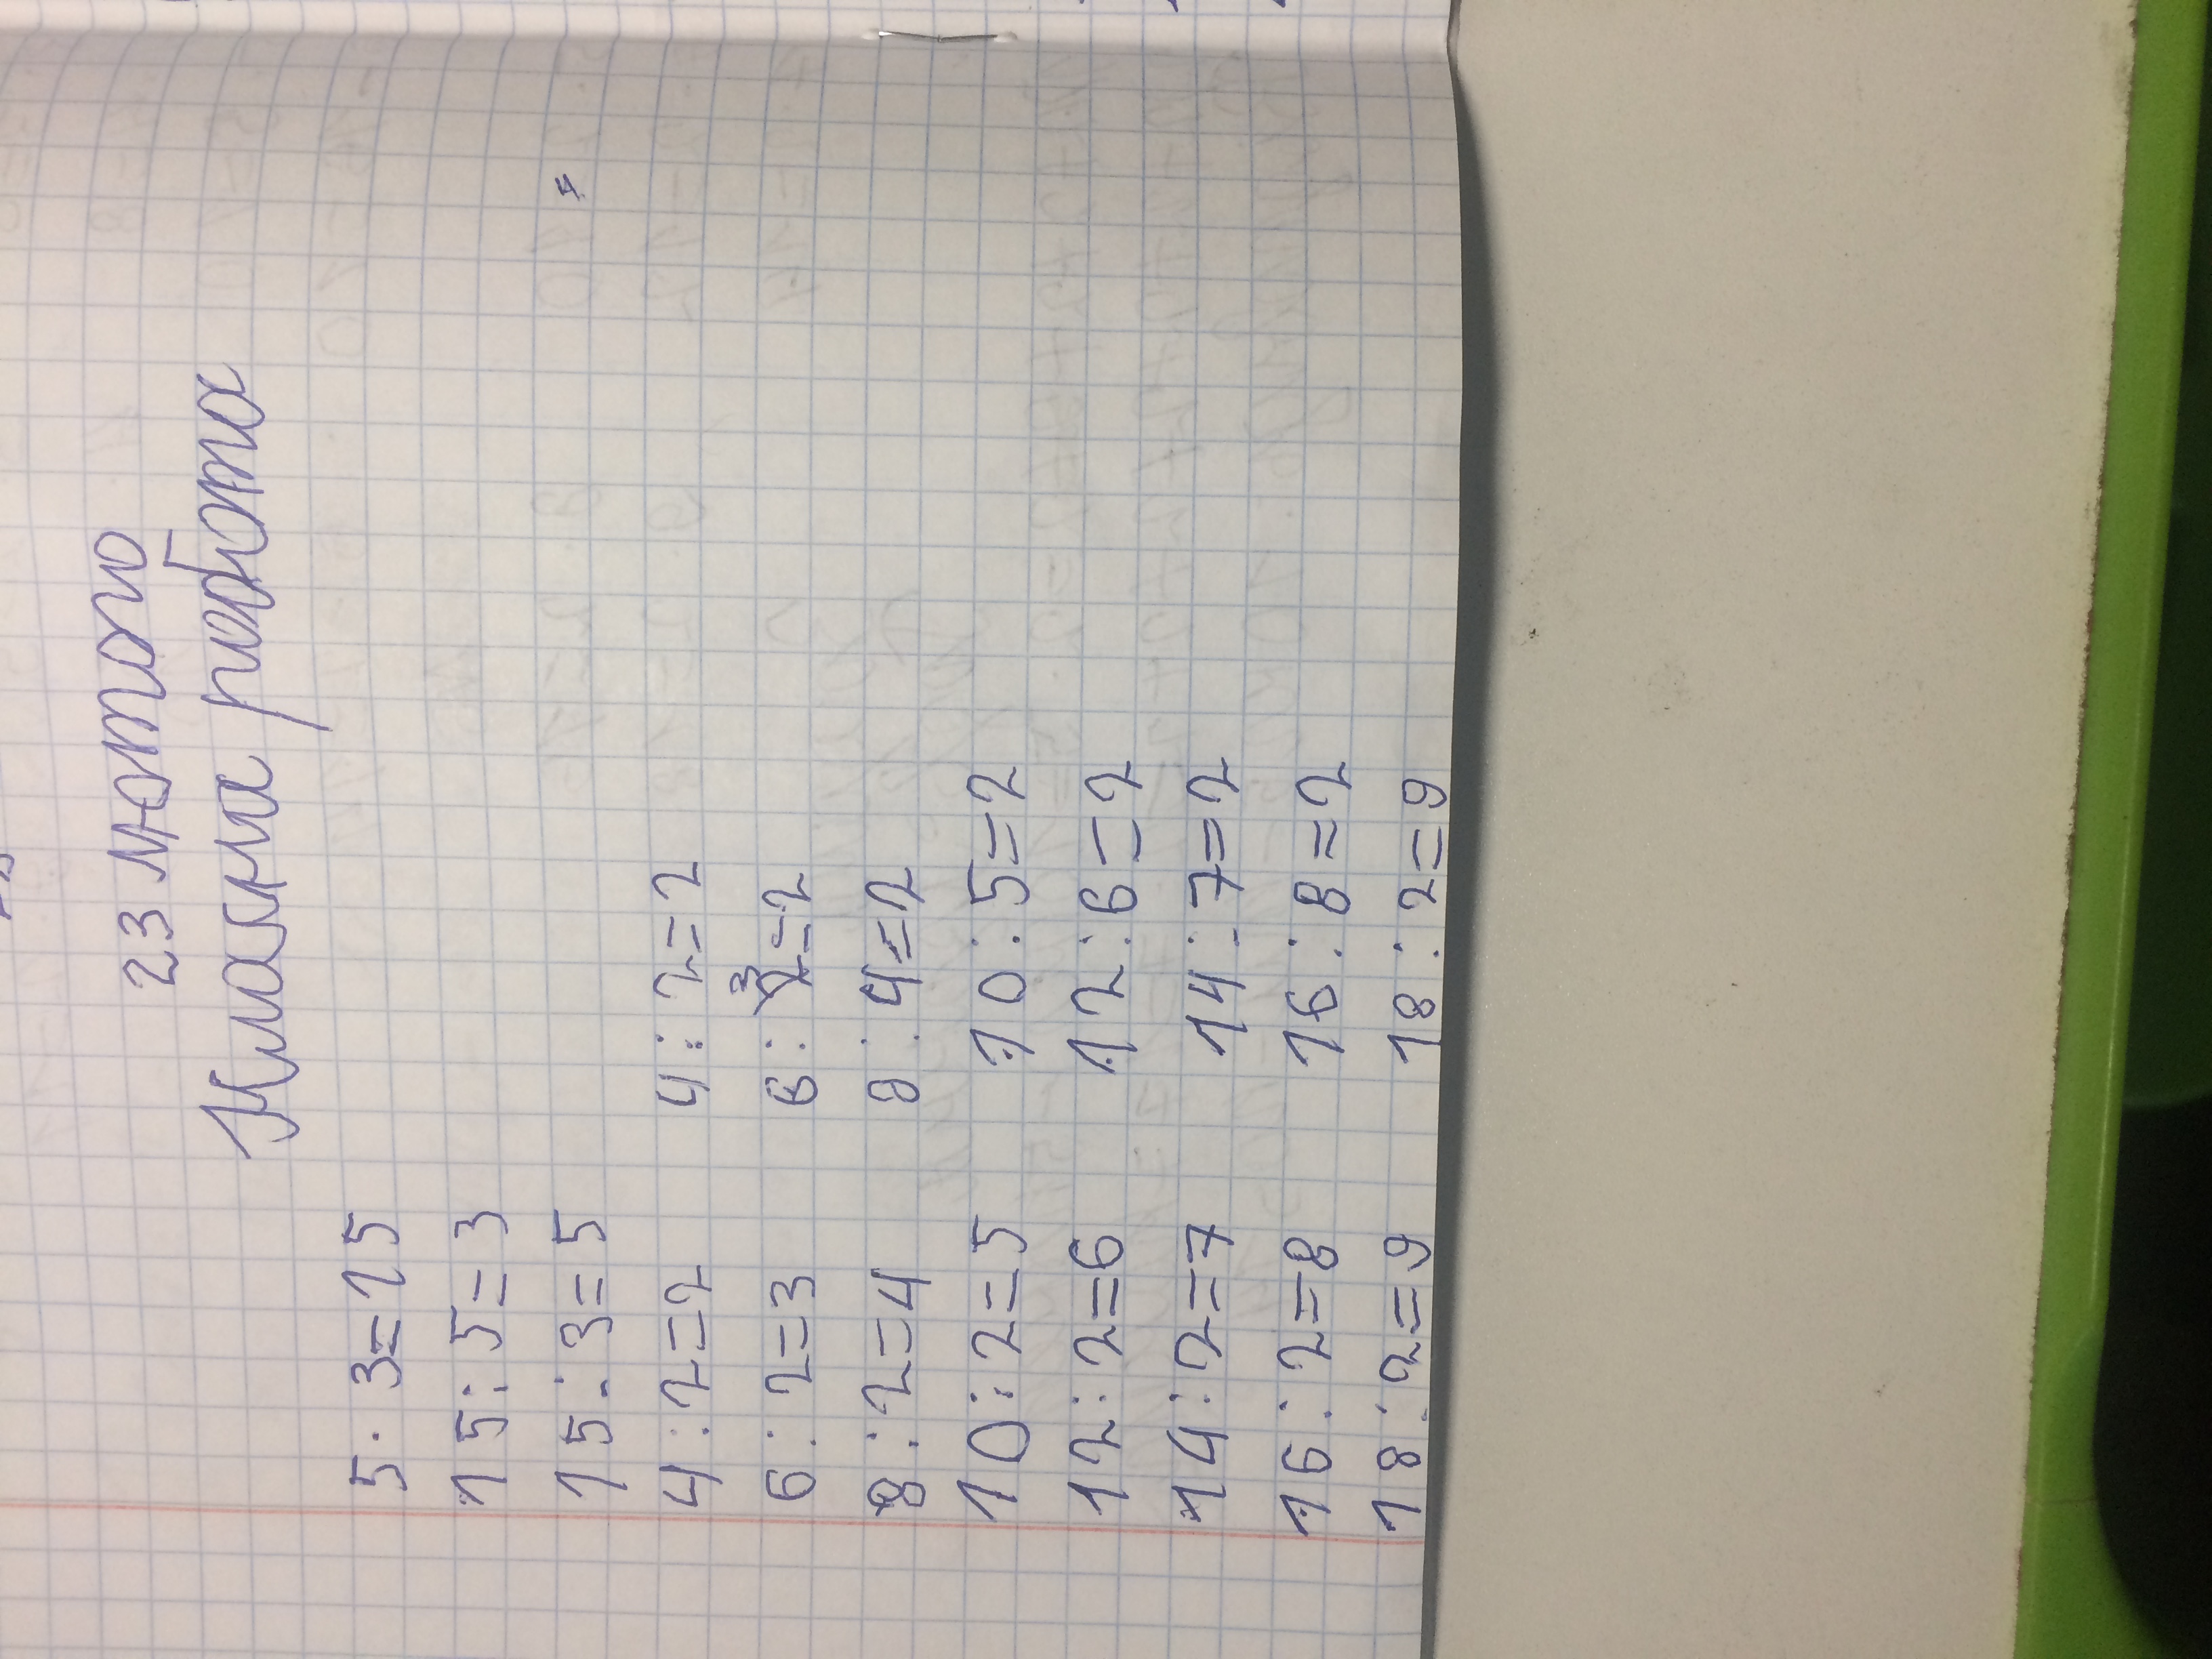 23 лютого
Класна робота
5 · 3 = 15
15 : 5 = 3
15 : 3 = 5
4 : 2 = 2 4 : 2 = 2
6 : 2 = 3 6 : 3 = 2
8 : 2 = 4 8 : 4 = 2
10 : 2 = 5 10 : 5 = 2
12 : 2 = 6 12 : 6 = 2
14 : 2 = 7 14 : 7 = 2
16 : 2 = 8 16 : 8 = 2
18 : 2 = 9 18 : 2 = 9